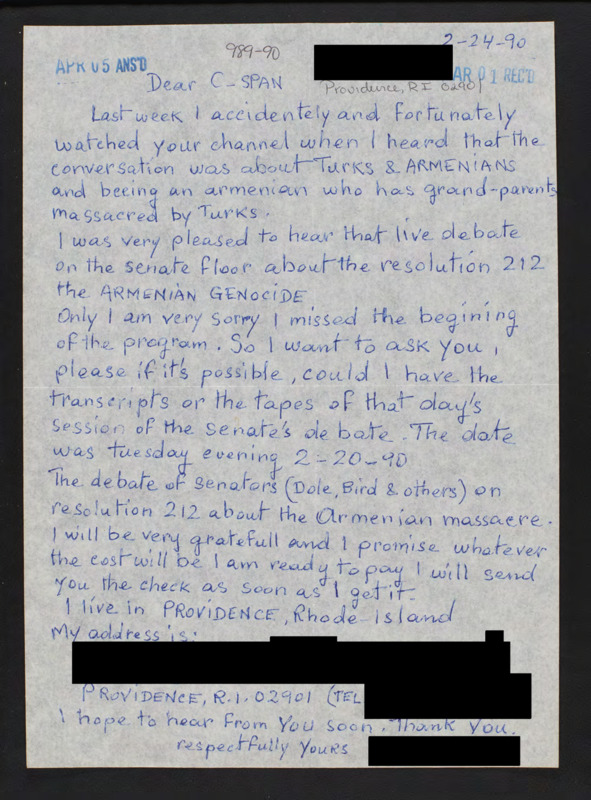 989-90
2-24-90
APR 05 ANS'D
AR 01 REC'D
Dear C-SPAN
Providence, R.I 02901
Last week I accidentely and fortunately
watched your channel when I heard that the
conversation was about TURKS & ARMENIANS
and beeing an armenian who has grand-parents
massacred by Turks.
I was very pleased to hear that live debate
on the senate floor about the resolution 212
the ARMENIAN GENOCIDE
Only I am very sorry I missed the begining
of the program. So I want to ask you,
please if it's possible, could I have the
transcripts or the tapes of that day's
session of the senate's debate. The date
was tuesday evening 2-20-90
The debate of senators (Dole, Bird & others) on
resolution 212 about the Armenian massacre.
I will be very gratefull and I promise whatever
the cost will be I am ready to pay I will send
you the check as soon as I get it.
I live in PROVIDENCE, Rhode-Island
My address is:
PROVIDENCE, R.I. 02901 (TEL
I hope to hear from You soon. Thank You.
respectfully Yours